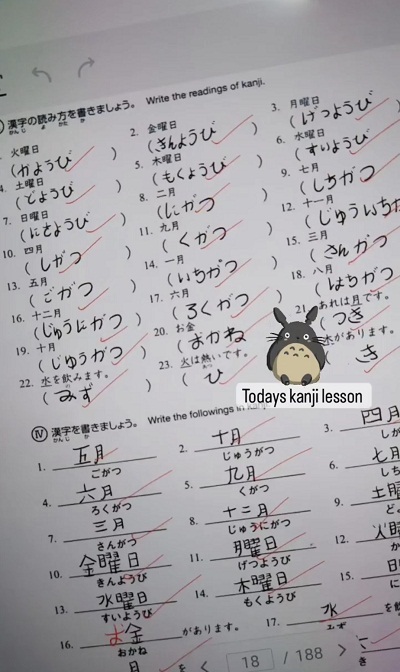 漢字の読み方を書きましょう。 Write the readings of kanji.
かんじ よ かた か
火曜日 2. 金曜日 3. 月曜日
(かようび) (きんようび) (げつようび)
4. 土曜日 5. 木曜日 6. 水曜日
(どようび) (もくようび) (すいようび
7. 日曜日 8. 二月 9. 七月
(にちようび) (にがつ) (しちがつ
10. 四月 11. 九月 12. 十一月
(しがつ) (くがつ) (じゅういちが
13. 五月 14. 一月 15. 三月
(ごがつ) (いちがつ) (さんがつ
16. 十二月 17. 六月 18. 八月
(じゅうにがつ) (ろくがつ) (はちがつ
19. 十月 20. お金 21. あれは月です。
(じゅうがつ) (おかね (つき
22. 水を飲みます。 23. 火は熱いです。 木があります。
(みず) (ひ き
Todays kanji lesson
Ⅳ 漢字を書きましょう。 Write the followings in
かんじ か
1. 五月 2. 十月 3. 四月
ごがつ じゅうがつ しが
4. 六月 5. 九月 6. 七月
ろくがつ くがつ しち
7. 三月 8. 十二月 9. 土曜
さんがつ じゅうにがつ ど
10. 金曜日 11. 月曜日 12. 火曜
きんようび げつようび か
13. 水曜日 14. 木曜日 15.
すいようび もくようび
16. お金があります。 17. 水
おかね みず
18 / 188